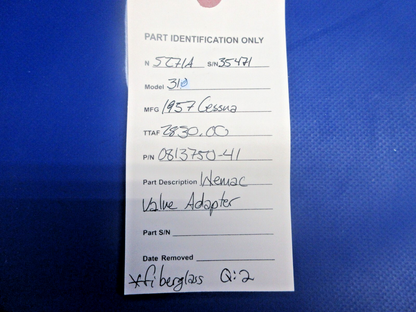 PART IDENTIFICATION ONLY
N 5271A S/N 35471
Model 310
MFG 1957 Cessna
TTAF 2830.00
P/N 0813750-41
Part Description Wemac
Valve Adapter
Part S/N
Date Removed
*fiberglass Q:2